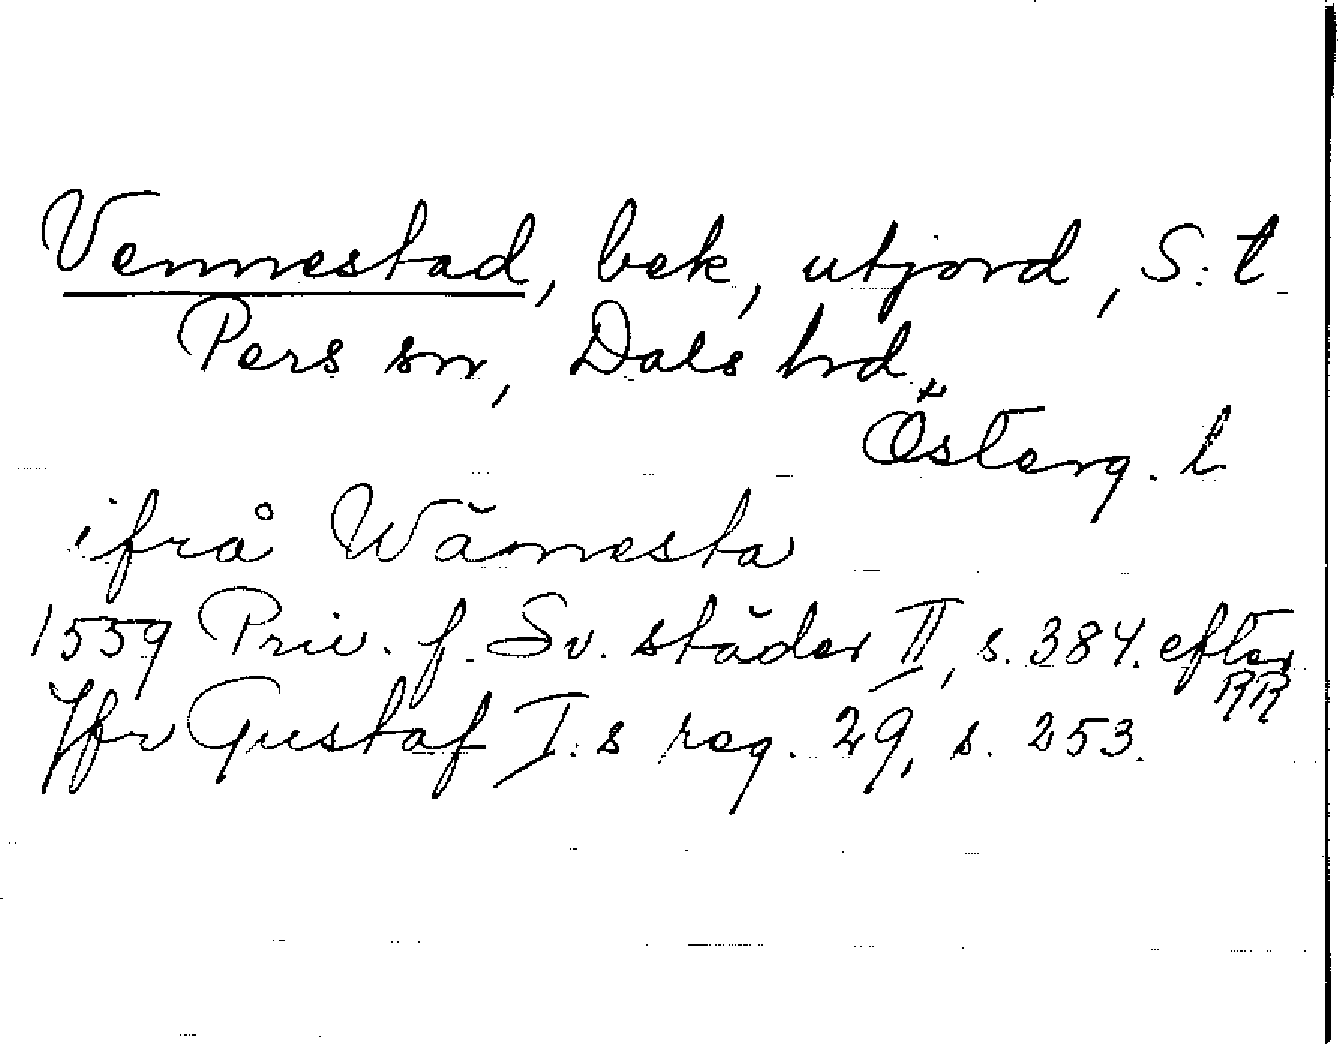 Vennestad, bek, utjord, S:t
Pers sn, Dals hrd,
Österg. l
ifrå Wämesta
1559 Priv. f. Sv. städer II, s. 384. efter
RR
Jfr Gustaf I:s reg. 29, s. 253.